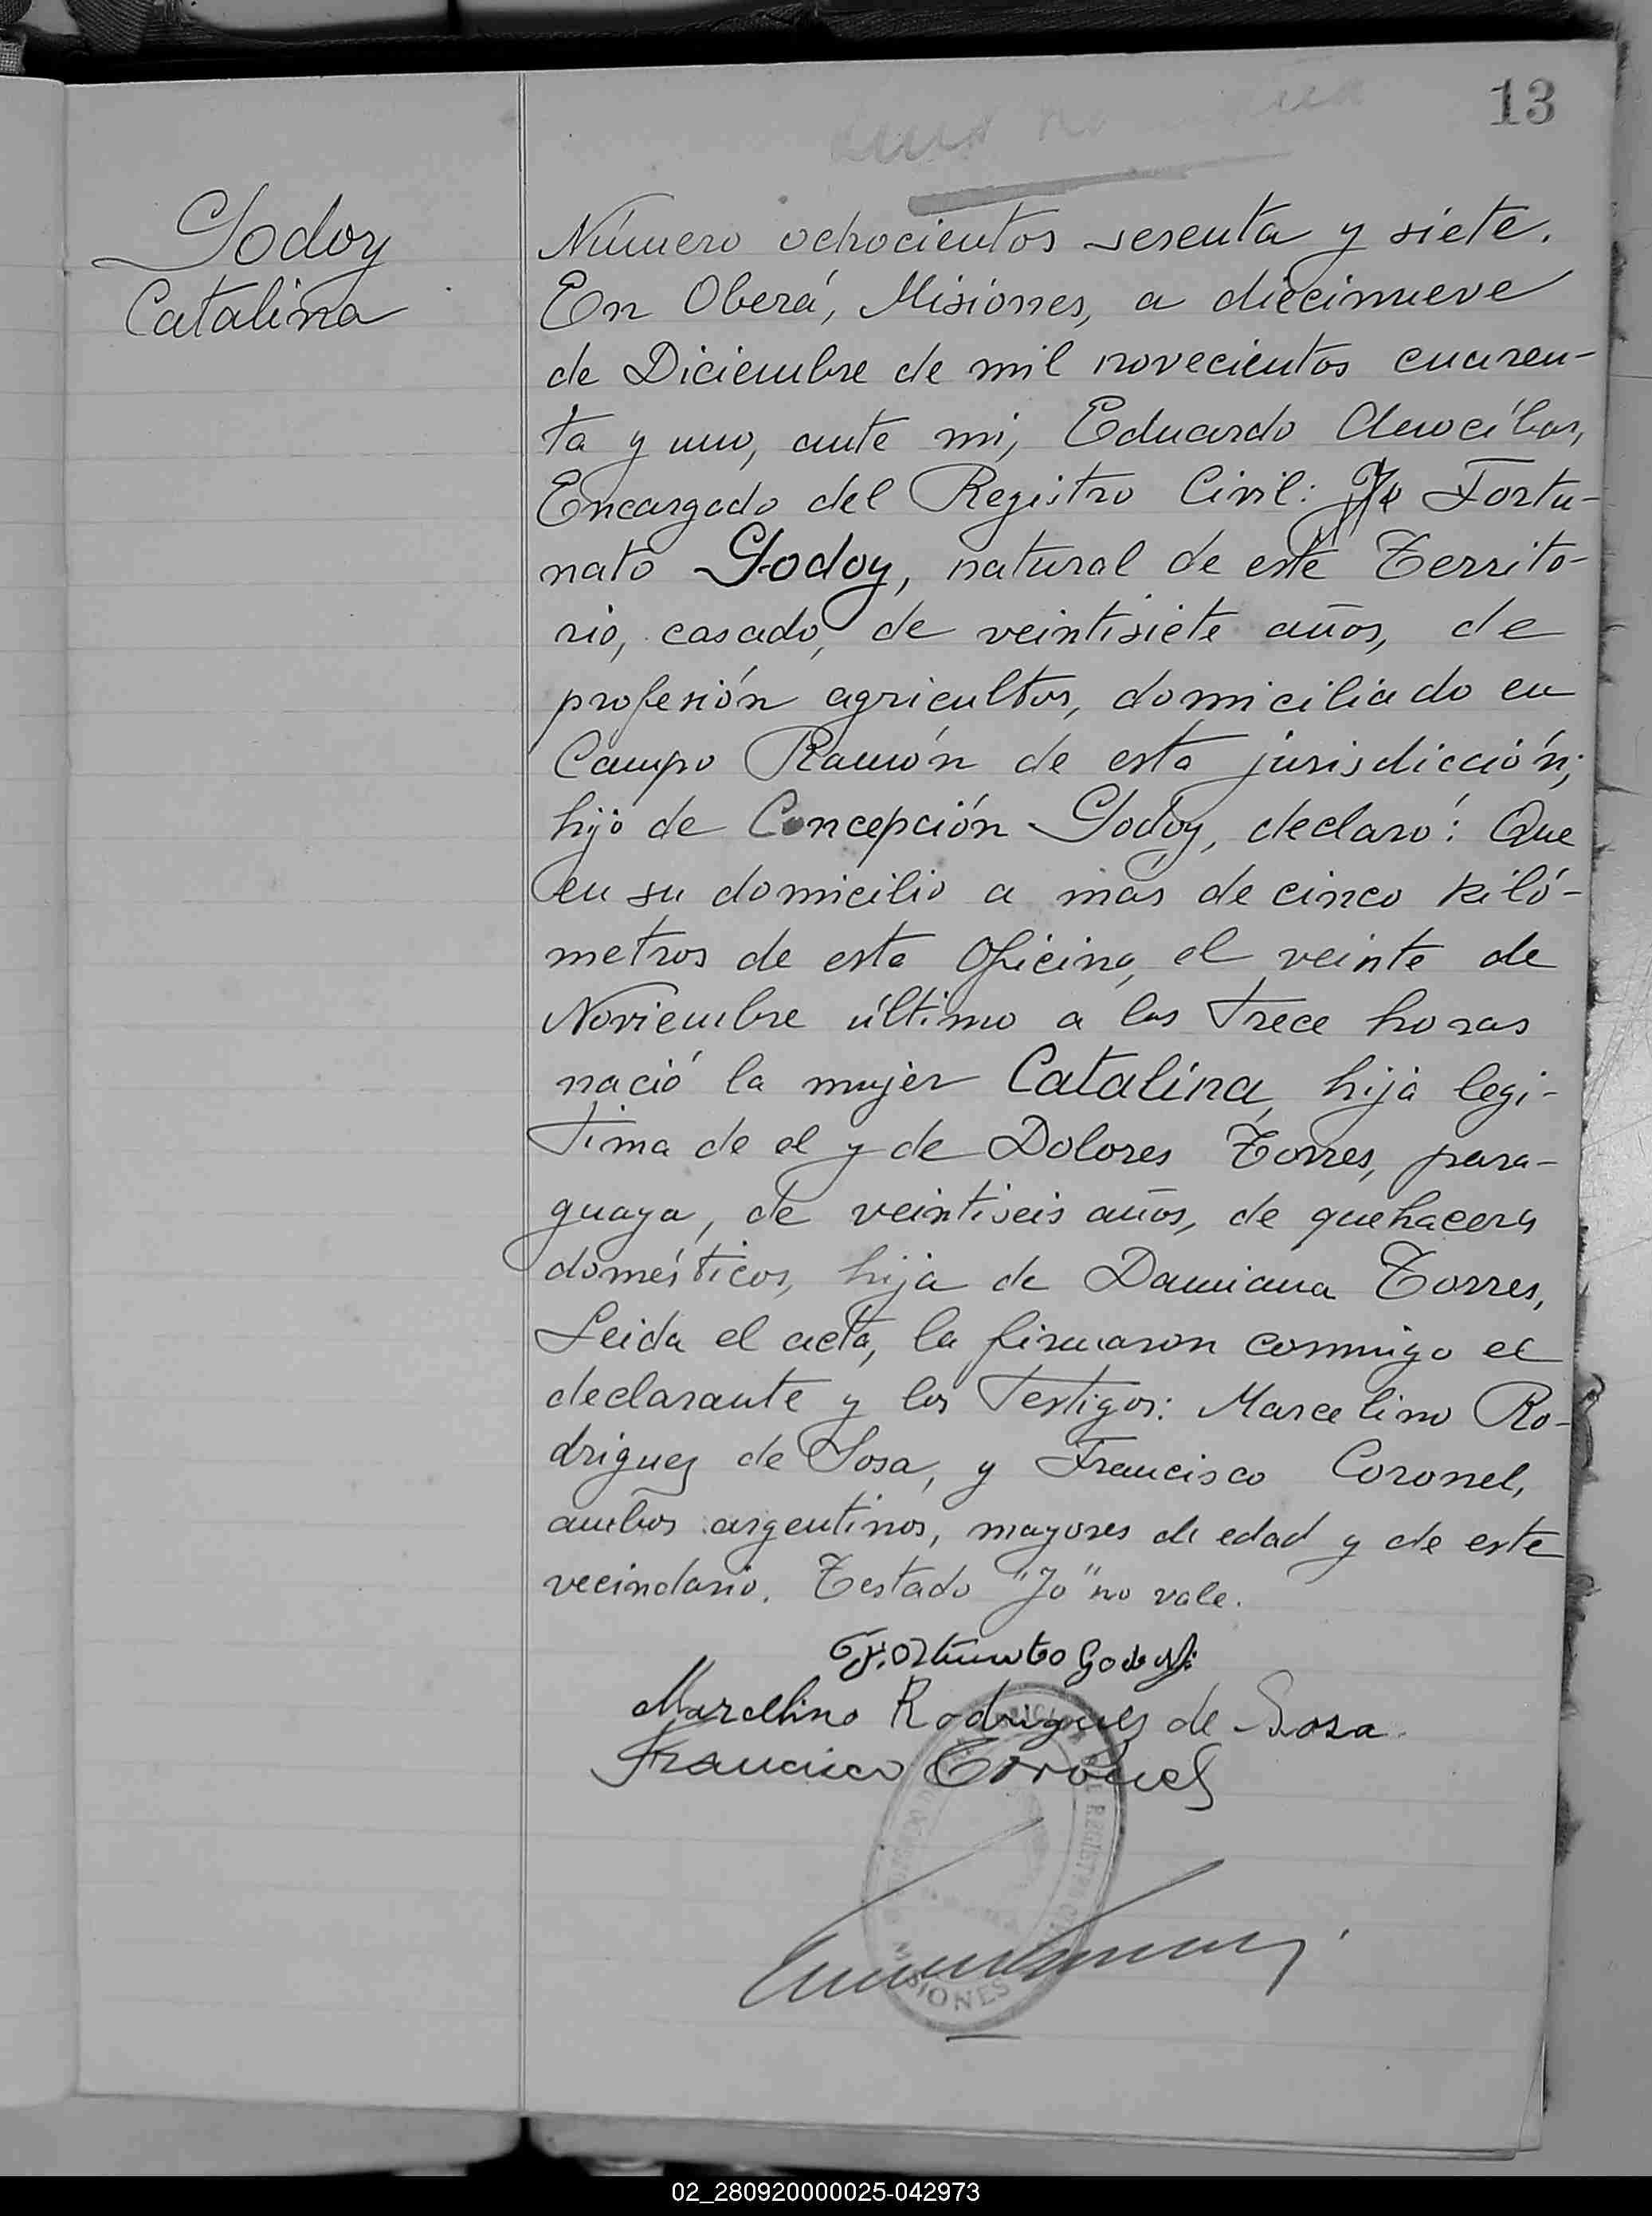 13
Godoy
Catalina
Número ochocientos sesenta y siete.
En Oberá, Misiones, a diecinueve
de Diciembre de mil novecientos cuaren-
ta y uno, ante mi, Eduardo
Encargado del Registro Civil: Yo Fortu-
nato Godoy, natural de este Territo-
rio, casado, de veintisiete años, de
profesión agricultor, domiciliado en
Campo Ramón de esta jurisdicción;
hijo de Concepción Godoy, declaró: Que
en su domicilio a mas de cinco kiló-
metros de esta Oficina, el veinte de
Noviembre último a las trece horas
nació la mujer Catalina, hija legi-
tima de el y de Dolores Torres, para-
guaya, de veintiseis años, de quehaceres
domésticos, hija de Damiana Torres,
Leida el acta, la firmaron conmigo el
declarante y los testigos: Marcelino Ro-
driguez de Sosa, y Francisco Coronel,
ambos argentinos, mayores de edad y de este
vecindario. Testado "Yo" no vale.
Fortunato Godoy
Marcelino Rodriguez de Sosa
Francisco Coronel
REGISTRO CIVIL
MISIONES
02_280920000025-042973